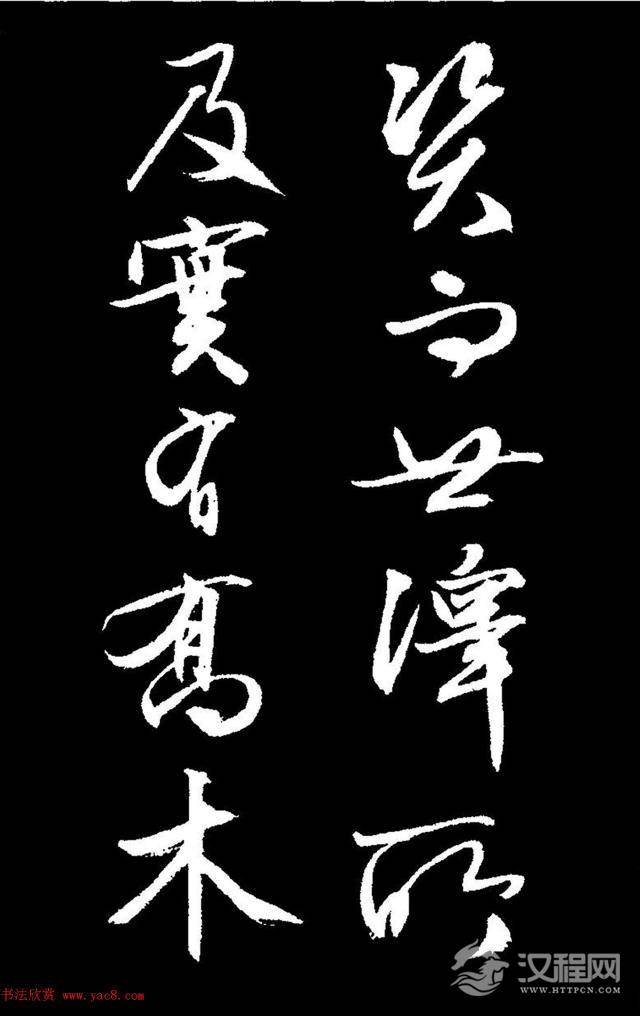 而世澤所
及實有髙木
书法欣赏 www.yac8.com
汉程网
WWW.HTTPCN.COM